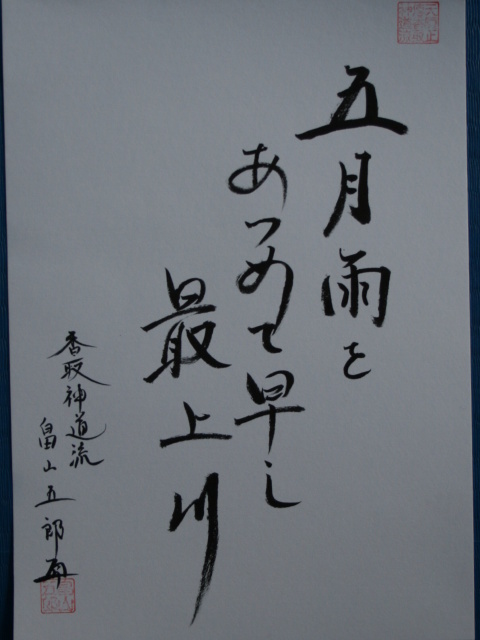 五月雨を
あつめて早し
最上川
香取神道流
畠山五郎